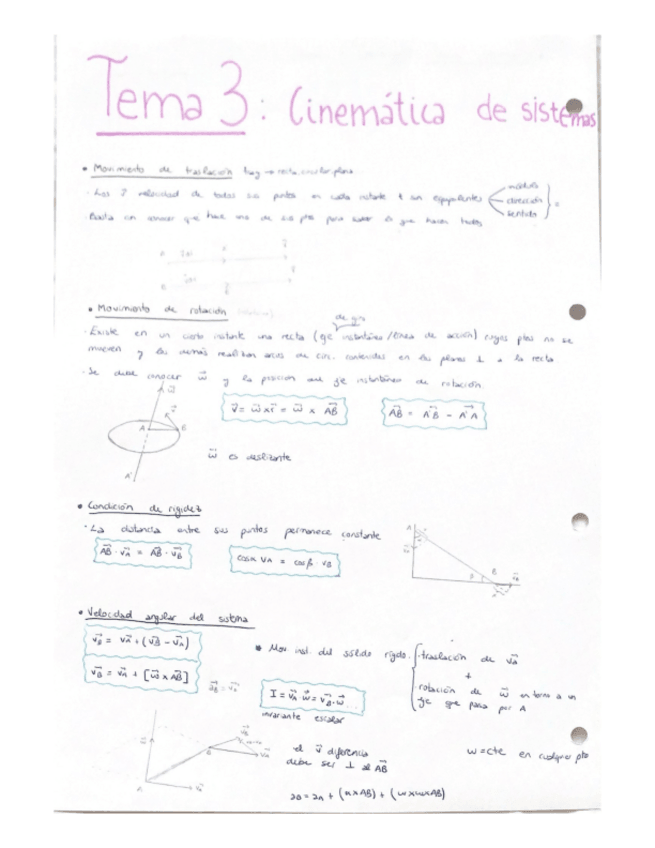 Tema 3: Cinemática de sistemas
• Movimiento de traslación hay → recta, circular, plana
· Las 2 velocidad de todos sus puntos en cada instante t son equipolentes módulo dirección sentido =
· Basta con conocer que hace uno de sus ptos para saber lo que hacen todos
• Movimiento de rotación
de giro
· Existe en un cierto instante una recta (eje instantáneo / línea de acción) cuyos ptos no se
mueven y los demás realizan arcos de circ. contenidos en los planos ⊥ a la recta
· Se debe conocer ω⃗ y la posición del eje instantáneo de rotación
v⃗ = ω⃗ x r⃗ = ω⃗ x AB⃗
AB⃗ = A'B⃗ - A'A⃗
ω⃗
A B
A'
ω⃗ es deslizante
• Condición de rigidez
· La distancia entre sus puntos permanece constante
AB⃗ · vA⃗ = AB⃗ · vB⃗
cosα vA = cosβ · vB
A
B
• Velocidad angular del sistema
vB⃗ = vA⃗ + (vB⃗ - vA⃗)
vB⃗ = vA⃗ + [ω⃗ x AB⃗]
* Mov. inst. del sólido rígido
traslación de vA⃗
+
rotación de ω⃗ en torno a un
eje que pasa por A
I = vA⃗ · ω⃗ = vB⃗ · ω⃗ ...
invariante escalar
el v⃗ diferencia
debe ser ⊥ al AB⃗
ω = cte en cualquier pto
aB = aA + (α x AB) + (ω x ω x AB)